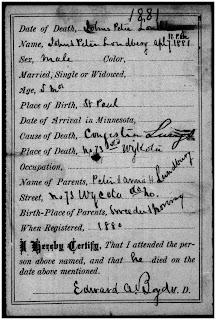 1881
Date of Death, Johns Peter Lundberg
Name, Johns Peter Lundberg Sept 7 1881
Sex, male Color,
Married, Single or Widowed,
Age, 5 mos
Place of Birth, St Paul
Date of Arrival in Minnesota,
Cause of Death, Congestion Lungs
Place of Death, No 73 Wykota
Occupation,
Name of Parents, Peter & Annie H Lundberg
Street, No 73 Wykota No.
Birth-Place of Parents, Sweden & Norway
When Registered, 1880
I Hereby Certify, That I attended the person above named, and that he died on the
date above mentioned.
Edward A. Boyd M. D.